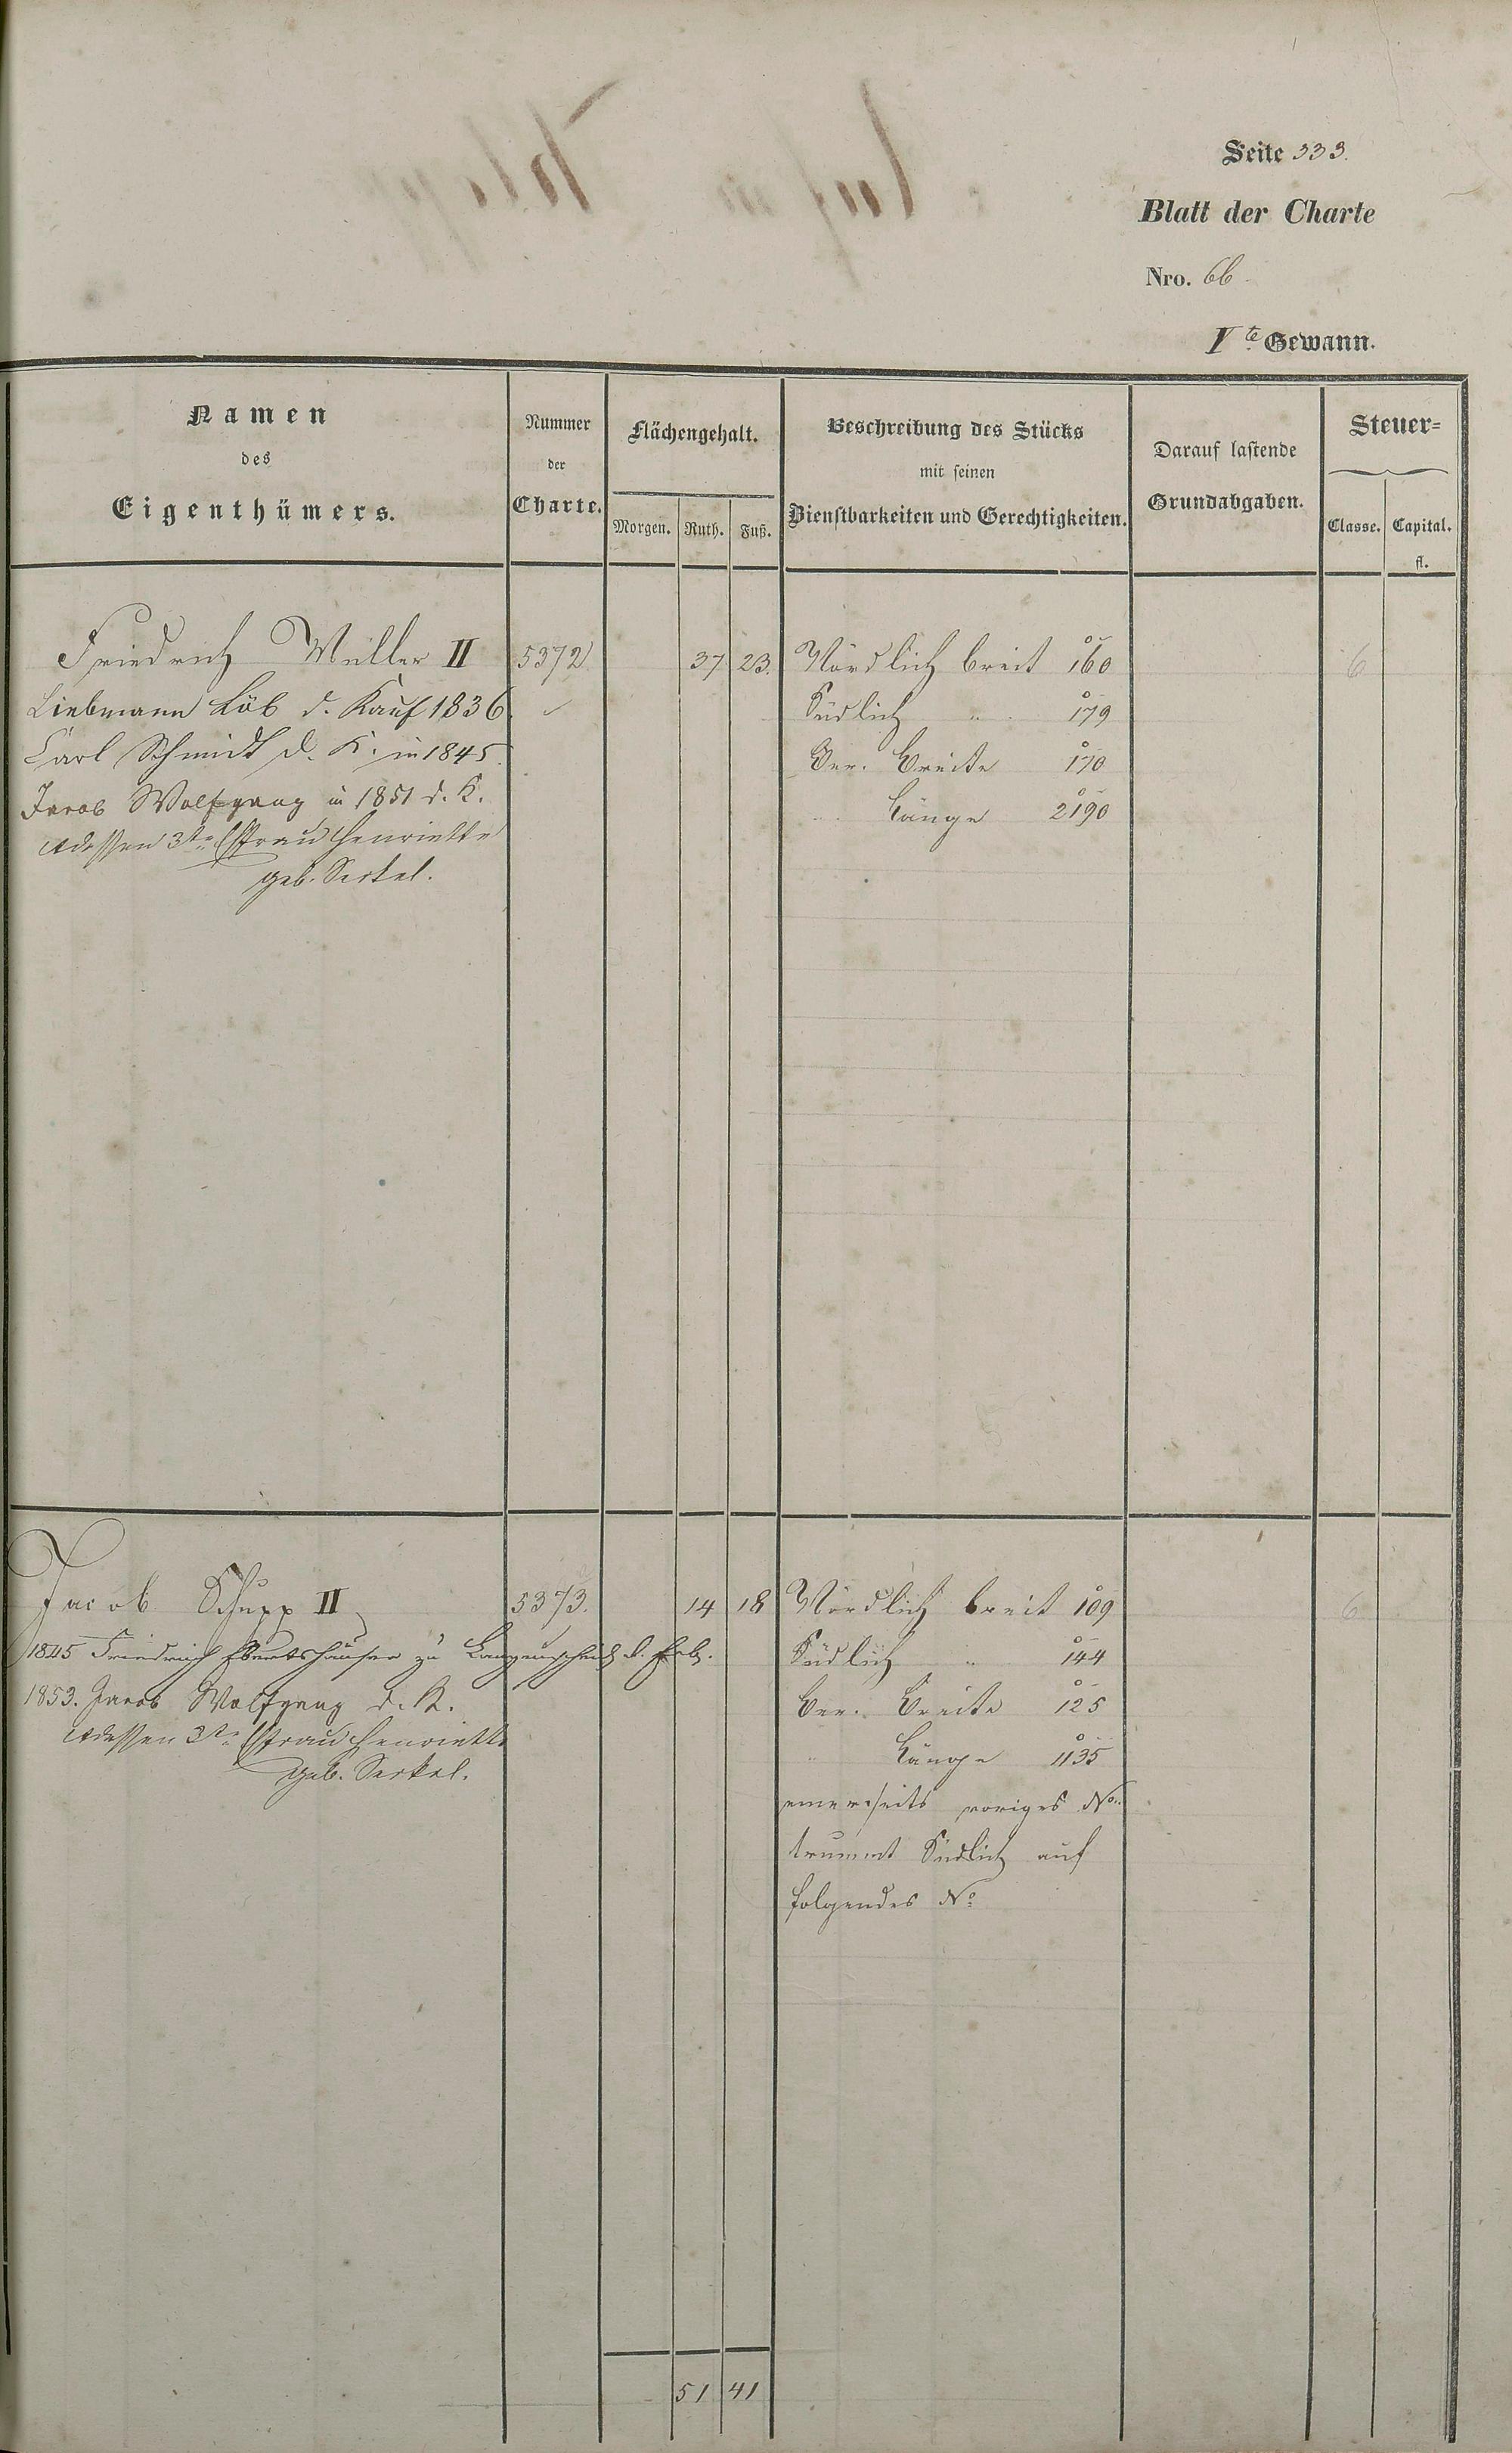 Seite 333.
Blatt der Charte
Nro. 66
Vte Gewann.
Namen
des
Eigenthümers.
Nummer
der
Charte.
Flächengehalt.
Morgen. Ruth. Fuß.
Beschreibung des Stücks
mit seinen
Dienstbarkeiten und Gerechtigkeiten.
Darauf lastende
Grundabgaben.
Steuer=
Classe. Capital.
fl.
Friedrich Müller II 5372 37 23. Nördlich breit 160 6
Liebmann Löb d. Kauf 1836. Südlich „ 179
Carl Schmidt d. K. in 1845. Ber. Breite 170
Jacob Wolfgang in 1851 d. K. Länge 2190
dessen 3te Ehfrau Henriette
geb. Serkel.
Jacob Schupp II 5373. 14 18 Nördlich breit 109 6
1845 Friedrich Ebertshäuser zu Langenscheid d. Erb. Südlich „ 144
1853. Jacob Wolfgang d. K. Ber. Breite 125
dessen 3te Ehfrau Henriette „ Länge 1135
geb. Serkel.
einerseits voriges No.
trummt Südlich auf
folgendes No
51 41